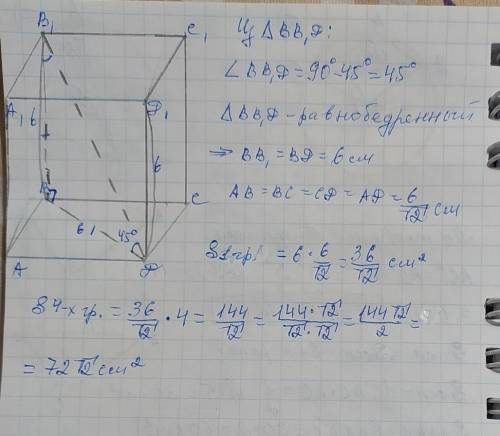 B₁
C₁
A₁
D₁
6
6
B
C
6
45°
A
D
Из △BB₁D:
∠BB₁D = 90° - 45° = 45°
△BB₁D - равнобедренный
⇒ BB₁ = BD = 6 см
AB = BC = CD = AD = 6/√2 см
S 1 гр. = 6 · 6/√2 = 36/√2 см²
S 4-х гр. = 36/√2 · 4 = 144/√2 = 144 · √2/√2 · √2 = 144√2/2 =
= 72√2 см²